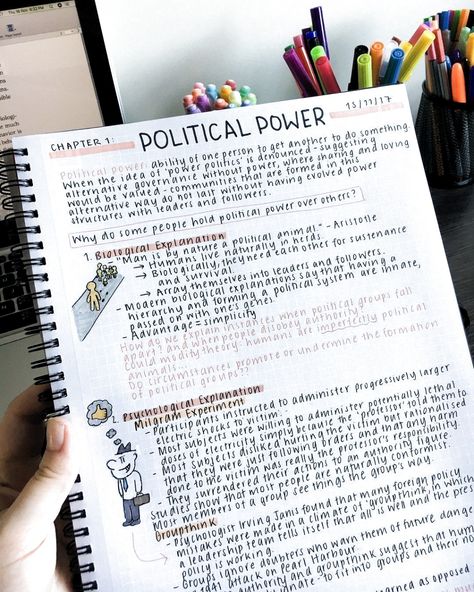 CHAPTER 1:
POLITICAL POWER
15/11/17
Political power: ability of one person to get another to do something.
When the idea of 'power politics' is denounced - suggesting
alternative governance without power, where sharing and loving
would be valued - communities that are formed in this
alternative way do not last without having evolved power
structures with leaders and followers.
Why do some people hold political power over others?
1. Biological Explanation
- "Man is by nature a political animal." - Aristotle
→ Humans live naturally in herds
→ Biologically, they need each other for sustenance
and survival.
→ Array themselves into leaders and followers.
- Modern biological explanations say that having a
hierarchy and forming a political system are innate,
passed on with one's genes
- Advantage - simplicity
How do we explain instances when political groups fall
apart? and when people disobey authority?
Could modify theory: humans are imperfectly political
animals...
Do circumstances promote or undermine the formation
of political groups??
Psychological Explanation
Milgram Experiment
- Participants instructed to administer progressively larger
electric shocks to victim.
- Most subjects were willing to administer potentially lethal
doses of electricity simply because the 'professor' told them to
Most subjects disliked hurting the victim but rationalised
that they were just following orders and that any harm
done to the victim was really the professor's responsibility.
They surrendered their actions to an authority figure.
Studies show that most people are naturally conformist.
Most members of a group see things the group's way.
Groupthink
- Psychologist Irving Janis found that many foreign policy
mistakes were made in a climate of 'groupthink', in which
a leadership team tells itself that all is well and the pres
policy is working.
Groups ignore doubters who warn them of future dang
attack on Pearl Harbour.
and groupthink suggest that hum
innate - to fit into groups and their no
learned as opposed